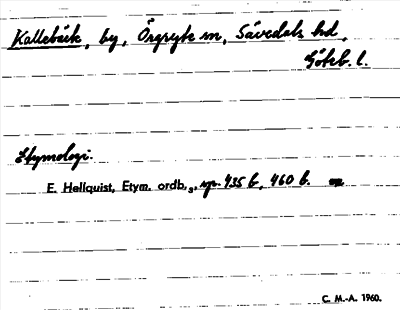 Kallebäck, by, Örgryte sn, Sävedals hd,
Göteb. l.
Etymologi.
E. Hellquist, Etym. ordb., s. 435 b, 460 b.
C. M.-A. 1960.